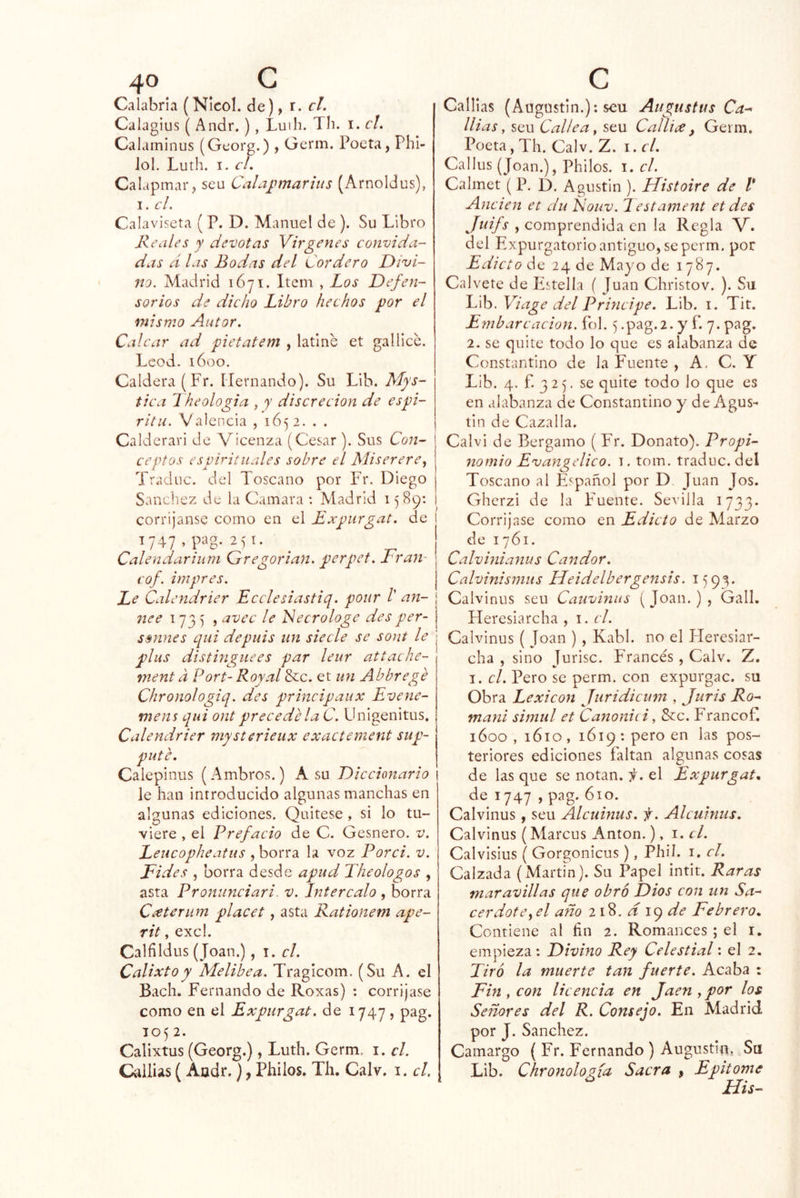 40 C
Calabria (Nicol. de), r. cl.
Calagius (Andr.), Luth. Th. 1. cl.
Calaminus (Georg.), Germ. Poeta, Phi-
lol. Luth. 1. cl.
Calapmar, seu Calapmarius (Arnoldus),
1. cl.
Calaviseta (P. D. Manuel de). Su Libro
Reales y devotas Virgenes convida-
das á las Bodas del Cordero Divi-
no. Madrid 1671. Item, Los Defen-
sorios de dicho Libro hechos por el
mismo Autor.
Calcar ad pietatem, latinè et gallicè.
Leod. 1600.
Caldera (Fr. Hernando). Su Lib. Mys-
tica Theologia, y discrecion de espi-
ritu. Valencia, 1652. . .
Calderari de Vicenza (Cesar). Sus Con-
ceptos espirituales sobre el Miserere,
Traduc. del Toscano por Fr. Diego
Sanchez de la Camara: Madrid 1589:
corrijanse como en el Expurgat. de
1747, pag. 251.
Calendarium Gregorian. perpet. Fran-
cof. impres.
Le Calendrier Ecclesiastiq. pour l' an-
nee 1735, avec le Necrologe des per-
sonnes qui depuis un siecle se sont le
plus distinguees par leur attache-
ment à Port-Royal &c. et un Abbregè
Chronologiq. des principaux Evene-
mens qui ont precedè la C. Unigenitus.
Calendrier mysterieux exactement sup-
putè.
Calepinus (Ambros.) A su Diccionario
le han introducido algunas manchas en
algunas ediciones. Quitese, si lo tu-
viere, el Prefacio de C. Gesnero. v.
Leucopheatus, borra la voz Porci. v.
Fides, borra desde apud Theologos,
asta Pronunciari. v. Intercalo, borra
Cæterum placet, asta Rationem ape-
rit, excl.
Calfildus (Joan.), 1. cl.
Calixto y Melibea. Tragicom. (Su A. el
Bach. Fernando de Roxas): corrijase
como en el Expurgat. de 1747, pag.
1052.
Calixtus (Georg.), Luth. Germ. 1. cl.
Callias (Andr.), Philos. Th. Calv. 1. cl.
C
Callias (Augustin.): seu Augustus Ca-
llias, seu Callea, seu Calliæ, Germ.
Poeta, Th. Calv. Z. 1. cl.
Callus (Joan.), Philos. 1. cl.
Calmet (P. D. Agustin). Histoire de l'
Ancien et du Nouv. Testament et des
Juifs, comprendida en la Regla V.
del Expurgatorio antiguo, se perm. por
Edicto de 24 de Mayo de 1787.
Calvete de Estella (Juan Christov.). Su
Lib. Viage del Principe. Lib. 1. Tit.
Embarcacion. fol. 5. pag. 2. y f. 7. pag.
2. se quite todo lo que es alabanza de
Constantino de la Fuente, A. C. Y
Lib. 4. f. 325. se quite todo lo que es
en alabanza de Constantino y de Agus-
tin de Cazalla.
Calvi de Bergamo (Fr. Donato). Propi-
nomio Evangelico. 1. tom. traduc. del
Toscano al Español por D. Juan Jos.
Gherzi de la Fuente. Sevilla 1733.
Corrijase como en Edicto de Marzo
de 1761.
Calvinianus Candor.
Calvinismus Heidelbergensis. 1593.
Calvinus seu Cauvinus (Joan.), Gall.
Heresiarcha, 1. cl.
Calvinus (Joan), Kabl. no el Heresiar-
cha, sino Jurisc. Francés, Calv. Z.
1. cl. Pero se perm. con expurgac. su
Obra Lexicon Juridicum, Juris Ro-
mani simul et Canonici, &c. Francof.
1600, 1610, 1619: pero en las pos-
teriores ediciones faltan algunas cosas
de las que se notan. ꝟ. el Expurgat.
de 1747, pag. 610.
Calvinus, seu Alcuinus. ꝟ. Alcuinus.
Calvinus (Marcus Anton.), 1. cl.
Calvisius (Gorgonicus), Phil. 1. cl.
Calzada (Martin). Su Papel intit. Raras
maravillas que obró Dios con un Sa-
cerdote, el año 218. á 19 de Febrero.
Contiene al fin 2. Romances; el 1.
empieza: Divino Rey Celestial: el 2.
Tiró la muerte tan fuerte. Acaba:
Fin, con licencia en Jaen, por los
Señores del R. Consejo. En Madrid
por J. Sanchez.
Camargo (Fr. Fernando) Augustin. Su
Lib. Chronología Sacra, Epitome
His-